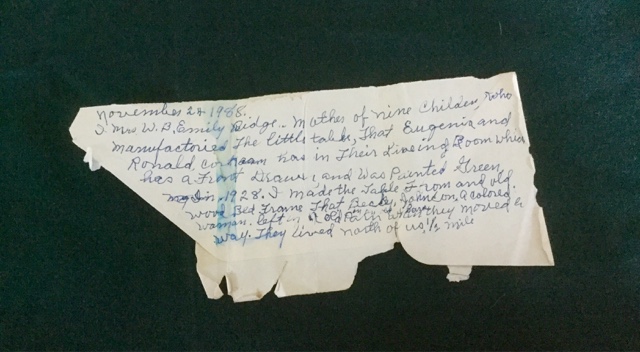 november 22 1988.
I Mrs W. B. Emily Ridge.. Mother of nine Childen, who
manufactoried The little table, That Eugenia and
Ronald has in Their Liveing Room which
has a Front Drawer, and Was Painted Green
in 1928. I made the Table From and old
wood Bed Frame That Becky, Johnson, a colored.
woman. left in old Path When they moved a
way. They lived north of us ½ mile